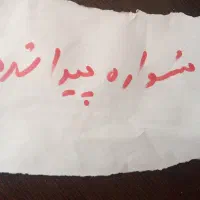 شواره پیدا شده